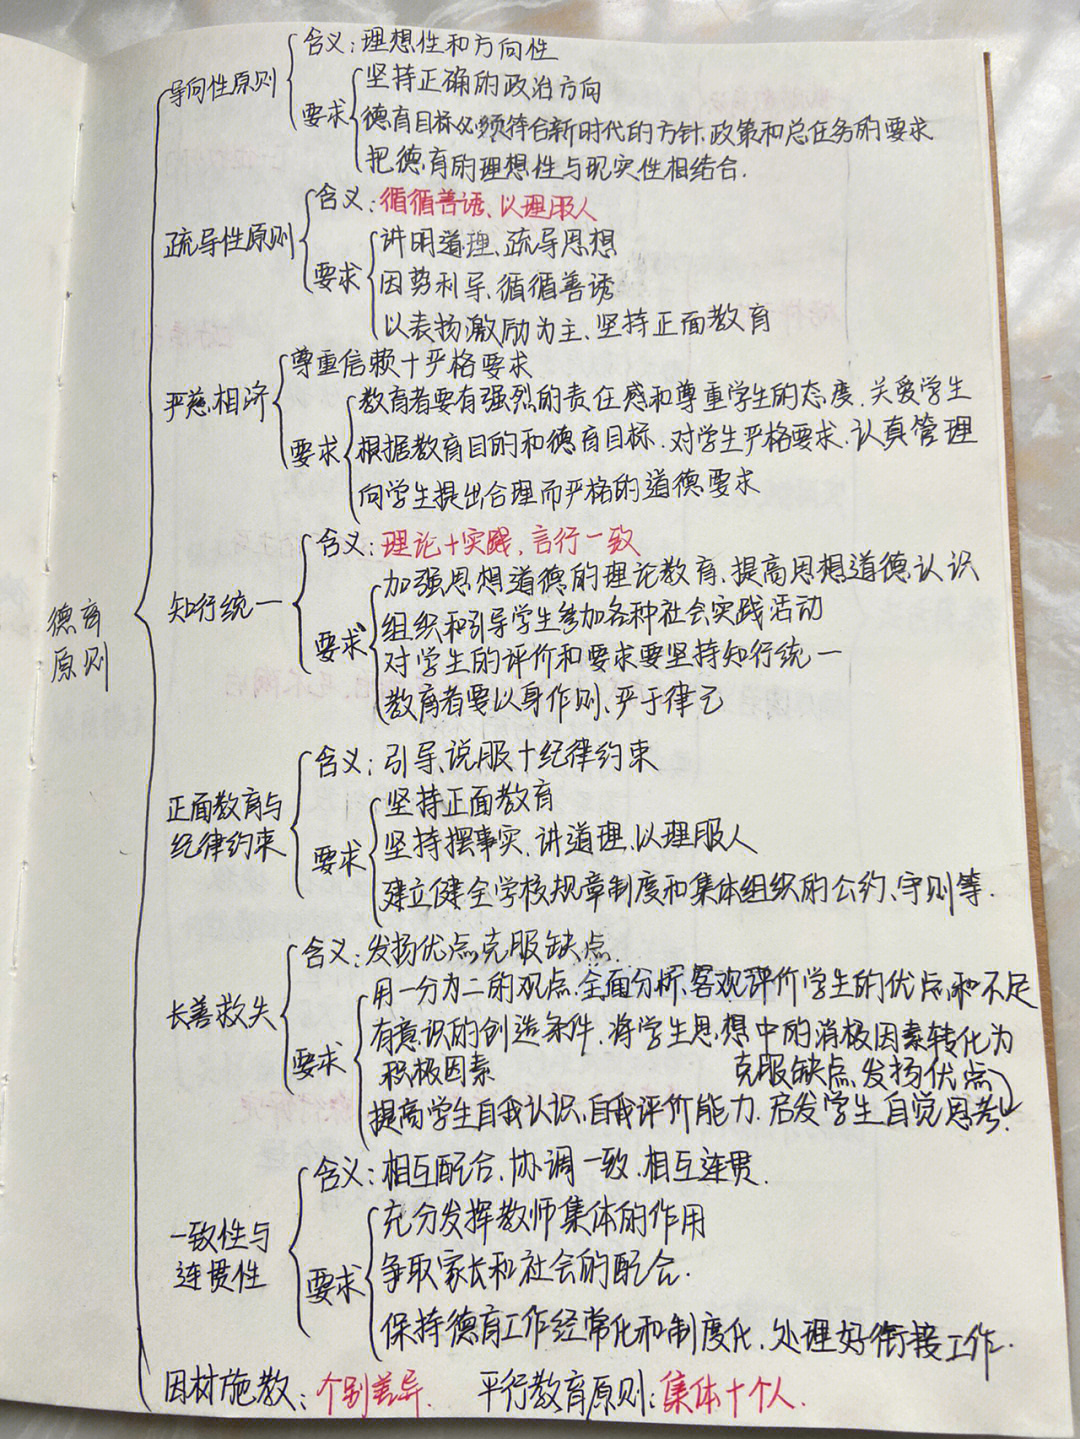 德育原则
导向性原则
含义：理想性和方向性
要求
坚持正确的政治方向
德育目标必须符合新时代的方针、政策和总任务的要求
把德育的理想性与现实性相结合.
疏导性原则
含义：循循善诱、以理服人
要求
讲明道理、疏导思想
因势利导、循循善诱
以表扬激励为主、坚持正面教育
严慈相济
尊重信赖+严格要求
要求
教育者要有强烈的责任感和尊重学生的态度、关爱学生
根据教育目的和德育目标、对学生严格要求、认真管理
向学生提出合理而严格的道德要求
知行统一
含义：理论+实践，言行一致
要求
加强思想道德的理论教育、提高思想道德认识
组织和引导学生参加各种社会实践活动
对学生的评价和要求要坚持知行统一
教育者要以身作则、严于律己
正面教育与
纪律约束
含义：引导、说服+纪律约束
要求
坚持正面教育
坚持摆事实、讲道理、以理服人
建立健全学校规章制度和集体组织的公约、守则等.
长善救失
含义：发扬优点克服缺点.
要求
用一分为二的观点、全面分析、客观评价学生的优点和不足
有意识的创造条件、将学生思想中的消极因素转化为
积极因素
克服缺点、发扬优点
提高学生自我认识、自我评价能力、启发学生自觉思考、
一致性与
连贯性
含义：相互配合、协调一致、相互连贯.
要求
充分发挥教师集体的作用
争取家长和社会的配合.
保持德育工作经常化和制度化、处理好衔接工作.
因材施教：个别差异. 平行教育原则：集体+个人.